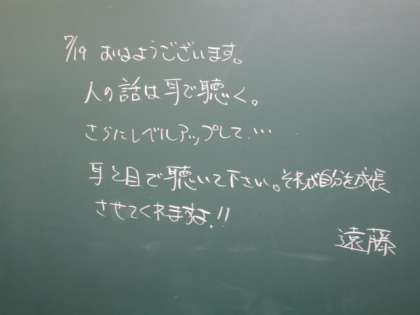 7/19 おはようございます。
人の話は耳で聴く。
さらにレベルアップして…
耳と目で聴いて下さい。それが自分を成長
させてくれますよ!!
遠藤